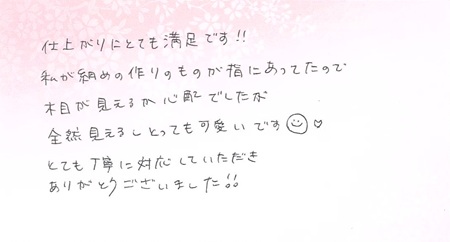 仕上がりにとても満足です!!
私が細めの作りのものが指にあってたので
木目が見えるか心配でしたが
全然見えるしとっても可愛いです☺♡
とても丁寧に対応していただき
ありがとうございました!!